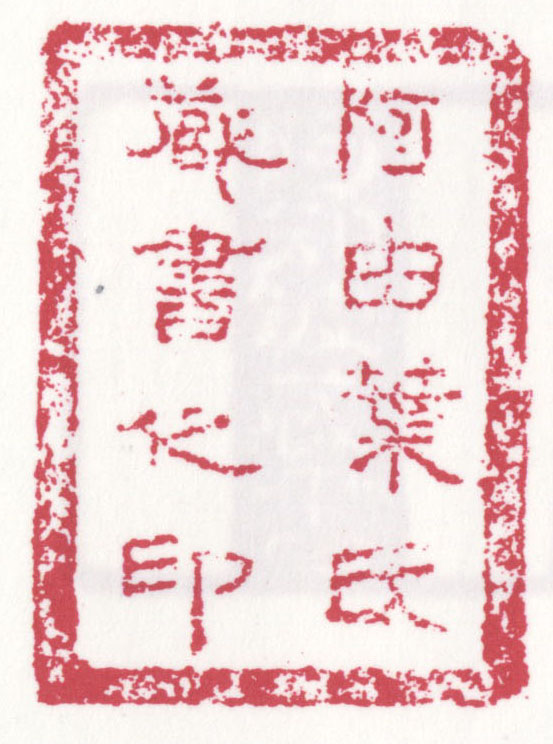 阿由葉氏
藏書之印